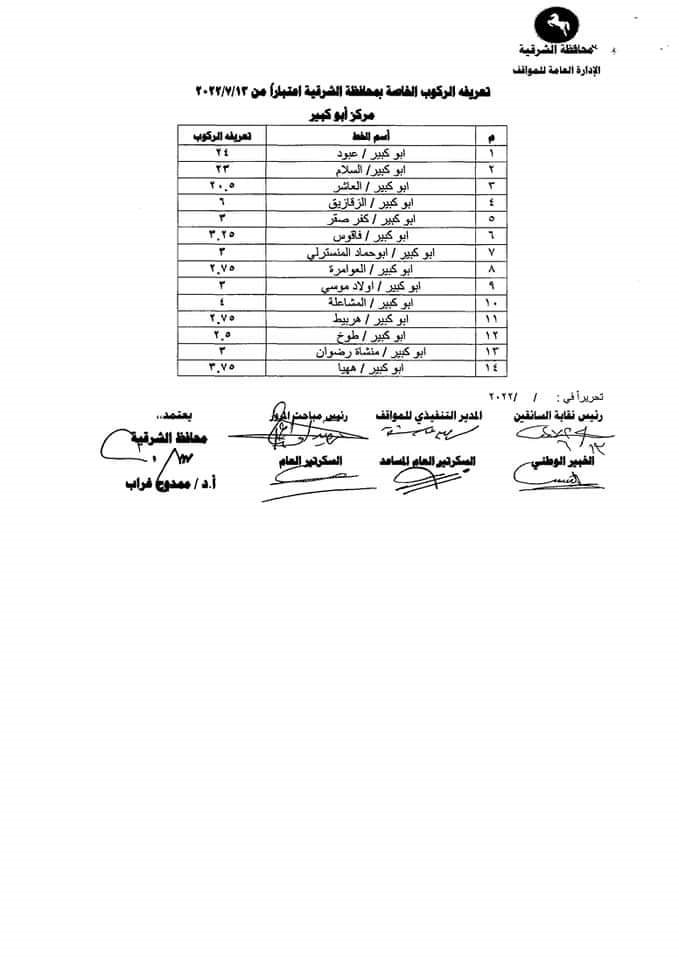 محافظة الشرقية
الإدارة العامة للمواقف
تعريفه الركوب الخاصة بمحافظة الشرقية اعتباراً من ٢٠٢٢/٧/١٣
مركز أبو كبير
م أسم الخط تعريفه الركوب
١ ابو كبير / عبود ٢٤
٢ ابو كبير/ السلام ٢٣
٣ ابو كبير/ العاشر ٢٠.٥
٤ ابو كبير / الزقازيق ٦
٥ ابو كبير / كفر صقر ٣
٦ ابو كبير / فاقوس ٣.٢٥
٧ ابو كبير / ابوحماد المنسترلي ٣
٨ ابو كبير / العوامرة ٢.٧٥
٩ ابو كبير / اولاد موسي ٣
١٠ ابو كبير / المشاعلة ٤
١١ ابو كبير / هربيط ٢.٧٥
١٢ ابو كبير / طوخ ٢.٥
١٣ ابو كبير / منشاة رضوان ٣
١٤ ابو كبير / ههيا ٣.٧٥
تحريراً في : / / ٢٠٢٢
رئيس نقابة السائقين المدير التنفيذي للمواقف رئيس مباحث المرور يعتمد،،
محافظ الشرقية
الخبير الوطني السكرتير العام المساعد السكرتير العام
أ.د / ممدوح غراب